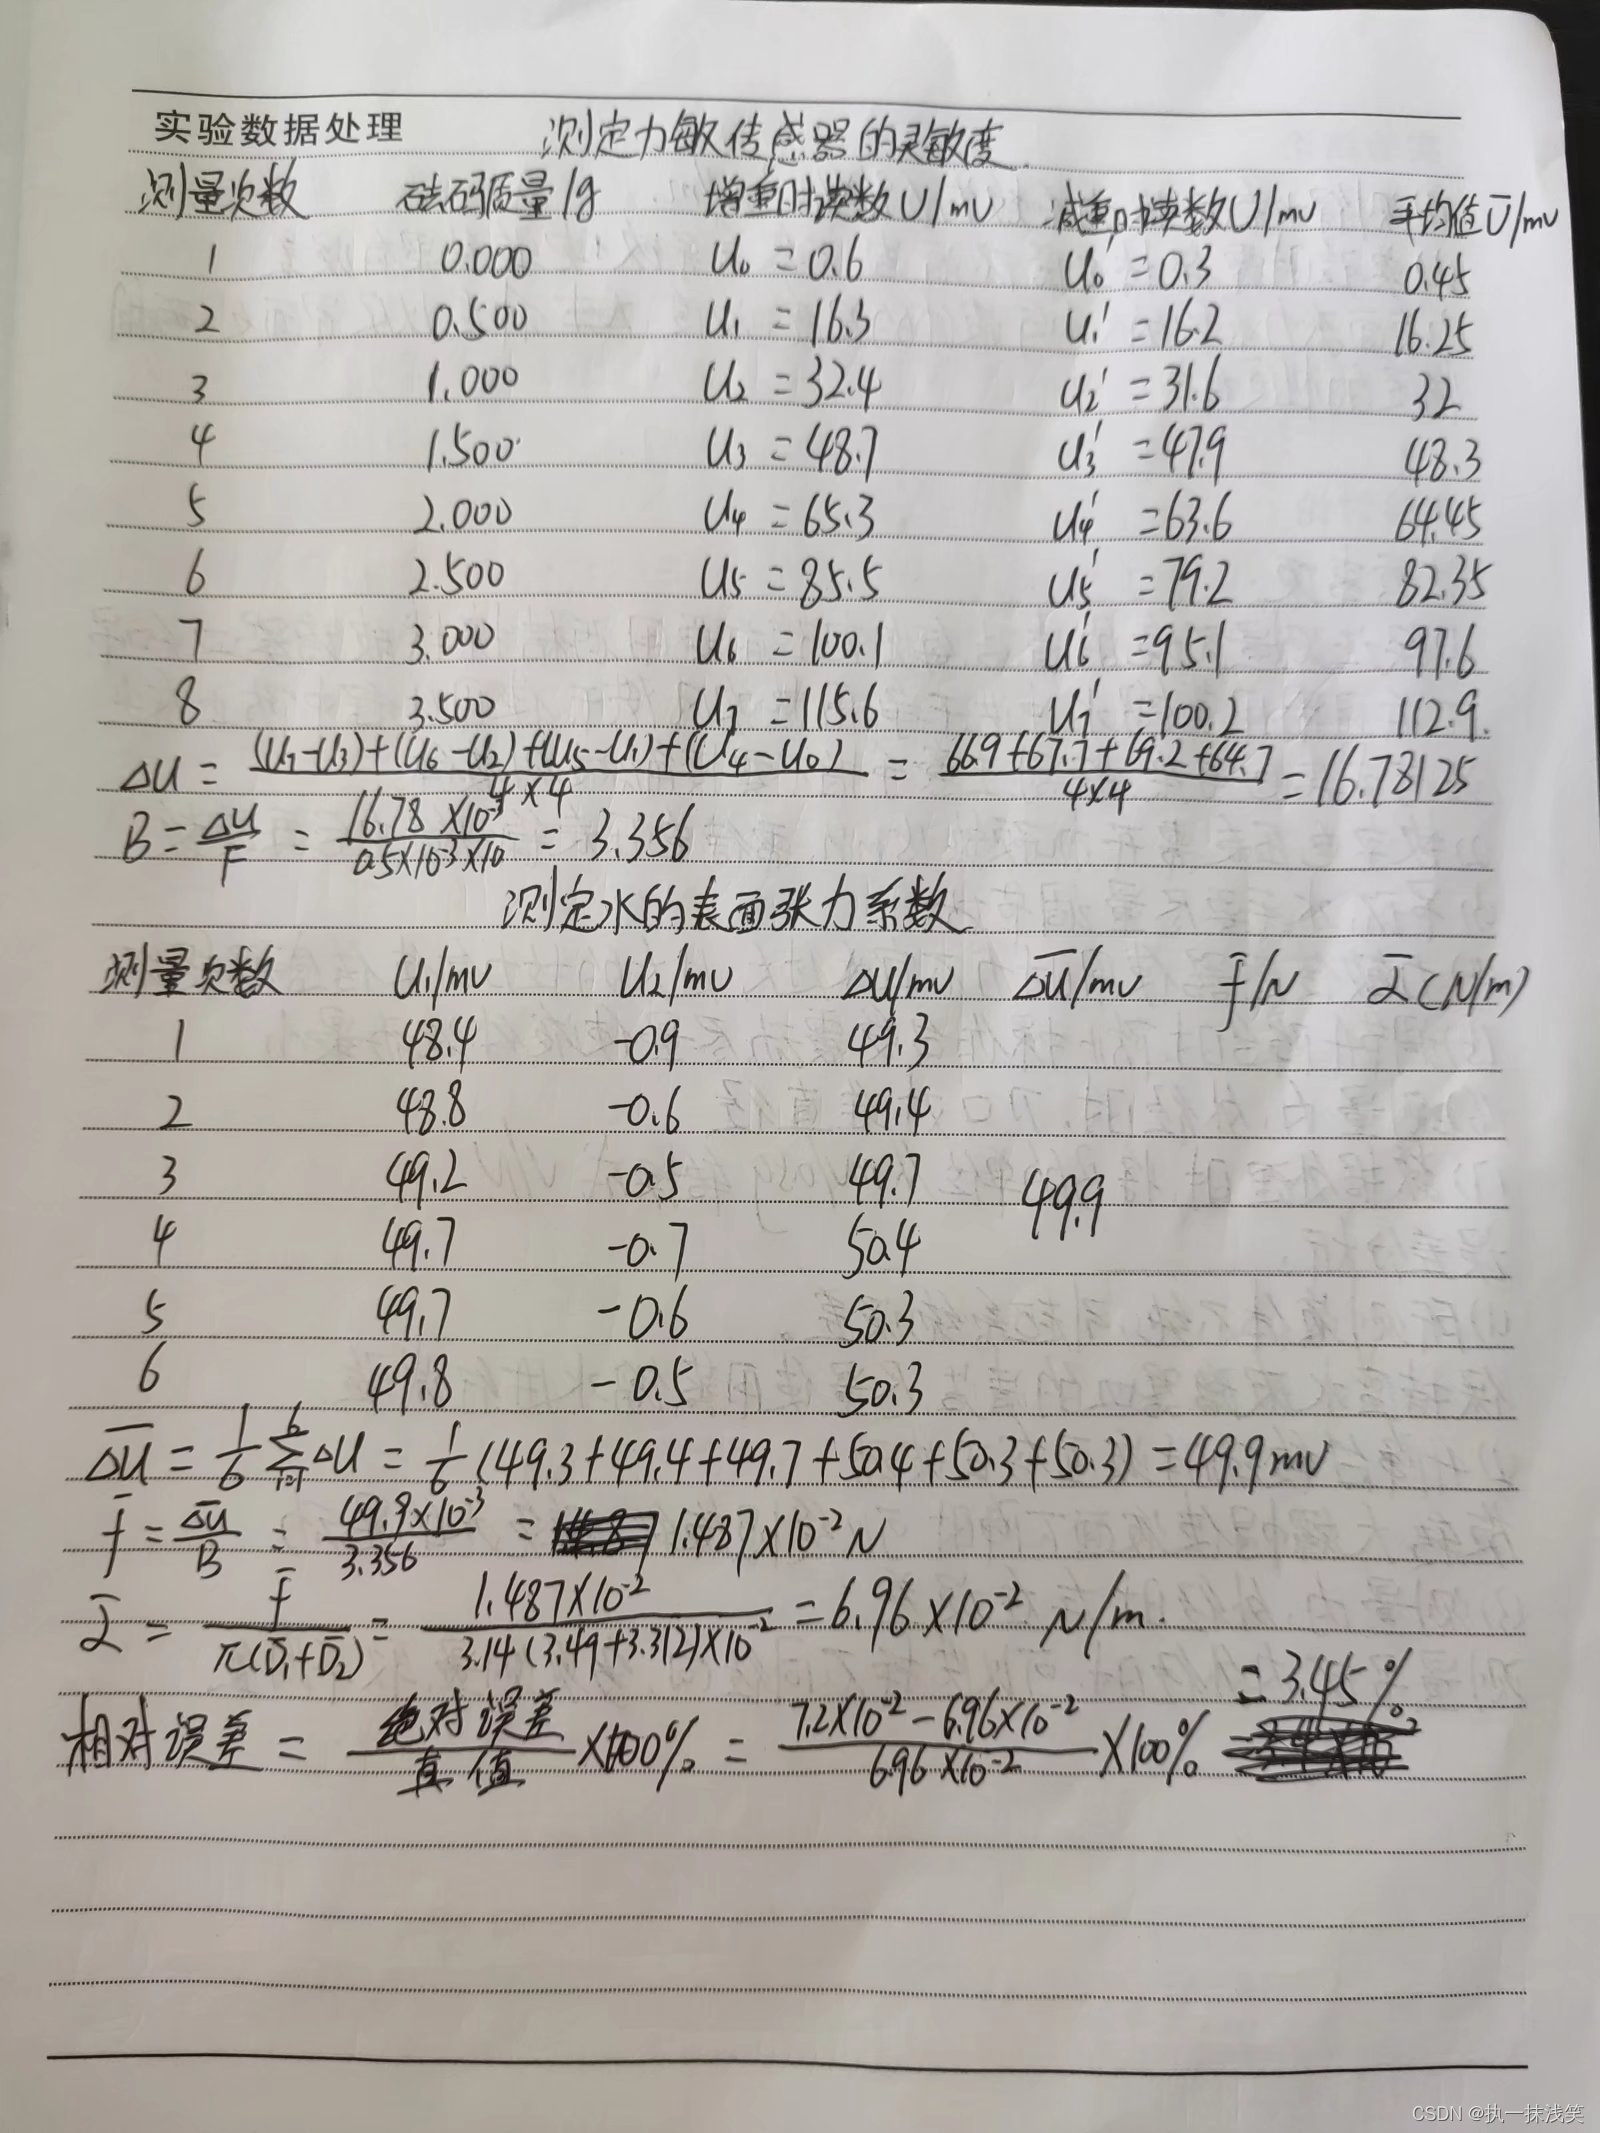 实验数据处理 测定力敏传感器的灵敏度
测量次数 砝码质量/g 增重时读数U/mv 减重时读数U/mv 平均值Ū/mv
1 0.000 U₀ = 0.6 U₀' = 0.3 0.45
2 0.500 U₁ = 16.3 U₁' = 16.2 16.25
3 1.000 U₂ = 32.4 U₂' = 31.6 32
4 1.500 U₃ = 48.7 U₃' = 47.9 48.3
5 2.000 U₄ = 65.3 U₄' = 63.6 64.45
6 2.500 U₅ = 85.5 U₅' = 79.2 82.35
7 3.000 U₆ = 100.1 U₆' = 95.1 97.6
8 3.500 U₇ = 115.6 U₇' = 100.2 112.9.
ΔU = (U₇-U₃)+(U₆-U₂)+(U₅-U₁)+(U₄-U₀) / 4×4 = 66.9+67.7+69.2+64.7 / 4×4 = 16.78125
B = ΔU/F = 16.78×10⁻³ / 0.5×10⁻³×10 = 3.356
测定水的表面张力系数
测量次数 U₁/mv U₂/mv ΔU/mv Δ̅U̅/mv f̄/N ᾱ(N/m)
1 48.4 -0.9 49.3
2 48.8 -0.6 49.4
3 49.2 -0.5 49.7 49.9
4 49.7 -0.7 50.4
5 49.7 -0.6 50.3
6 49.8 -0.5 50.3
Δ̅U̅ = 1/6 Σ ΔU = 1/6 (49.3+49.4+49.7+50.4+50.3+50.3) = 49.9mv
f̄ = Δ̅U̅/B = 49.9×10⁻³ / 3.356 = 1.487×10⁻² N
ᾱ = f̄ / π(D̄₁+D̄₂) = 1.487×10⁻² / 3.14(3.49+3.312)×10⁻² = 6.96×10⁻² N/m.
相对误差 = 绝对误差/真值 ×100% = 7.2×10⁻²-6.96×10⁻² / 6.96×10⁻² ×100% = 3.45%
CSDN @执一抹浅笑